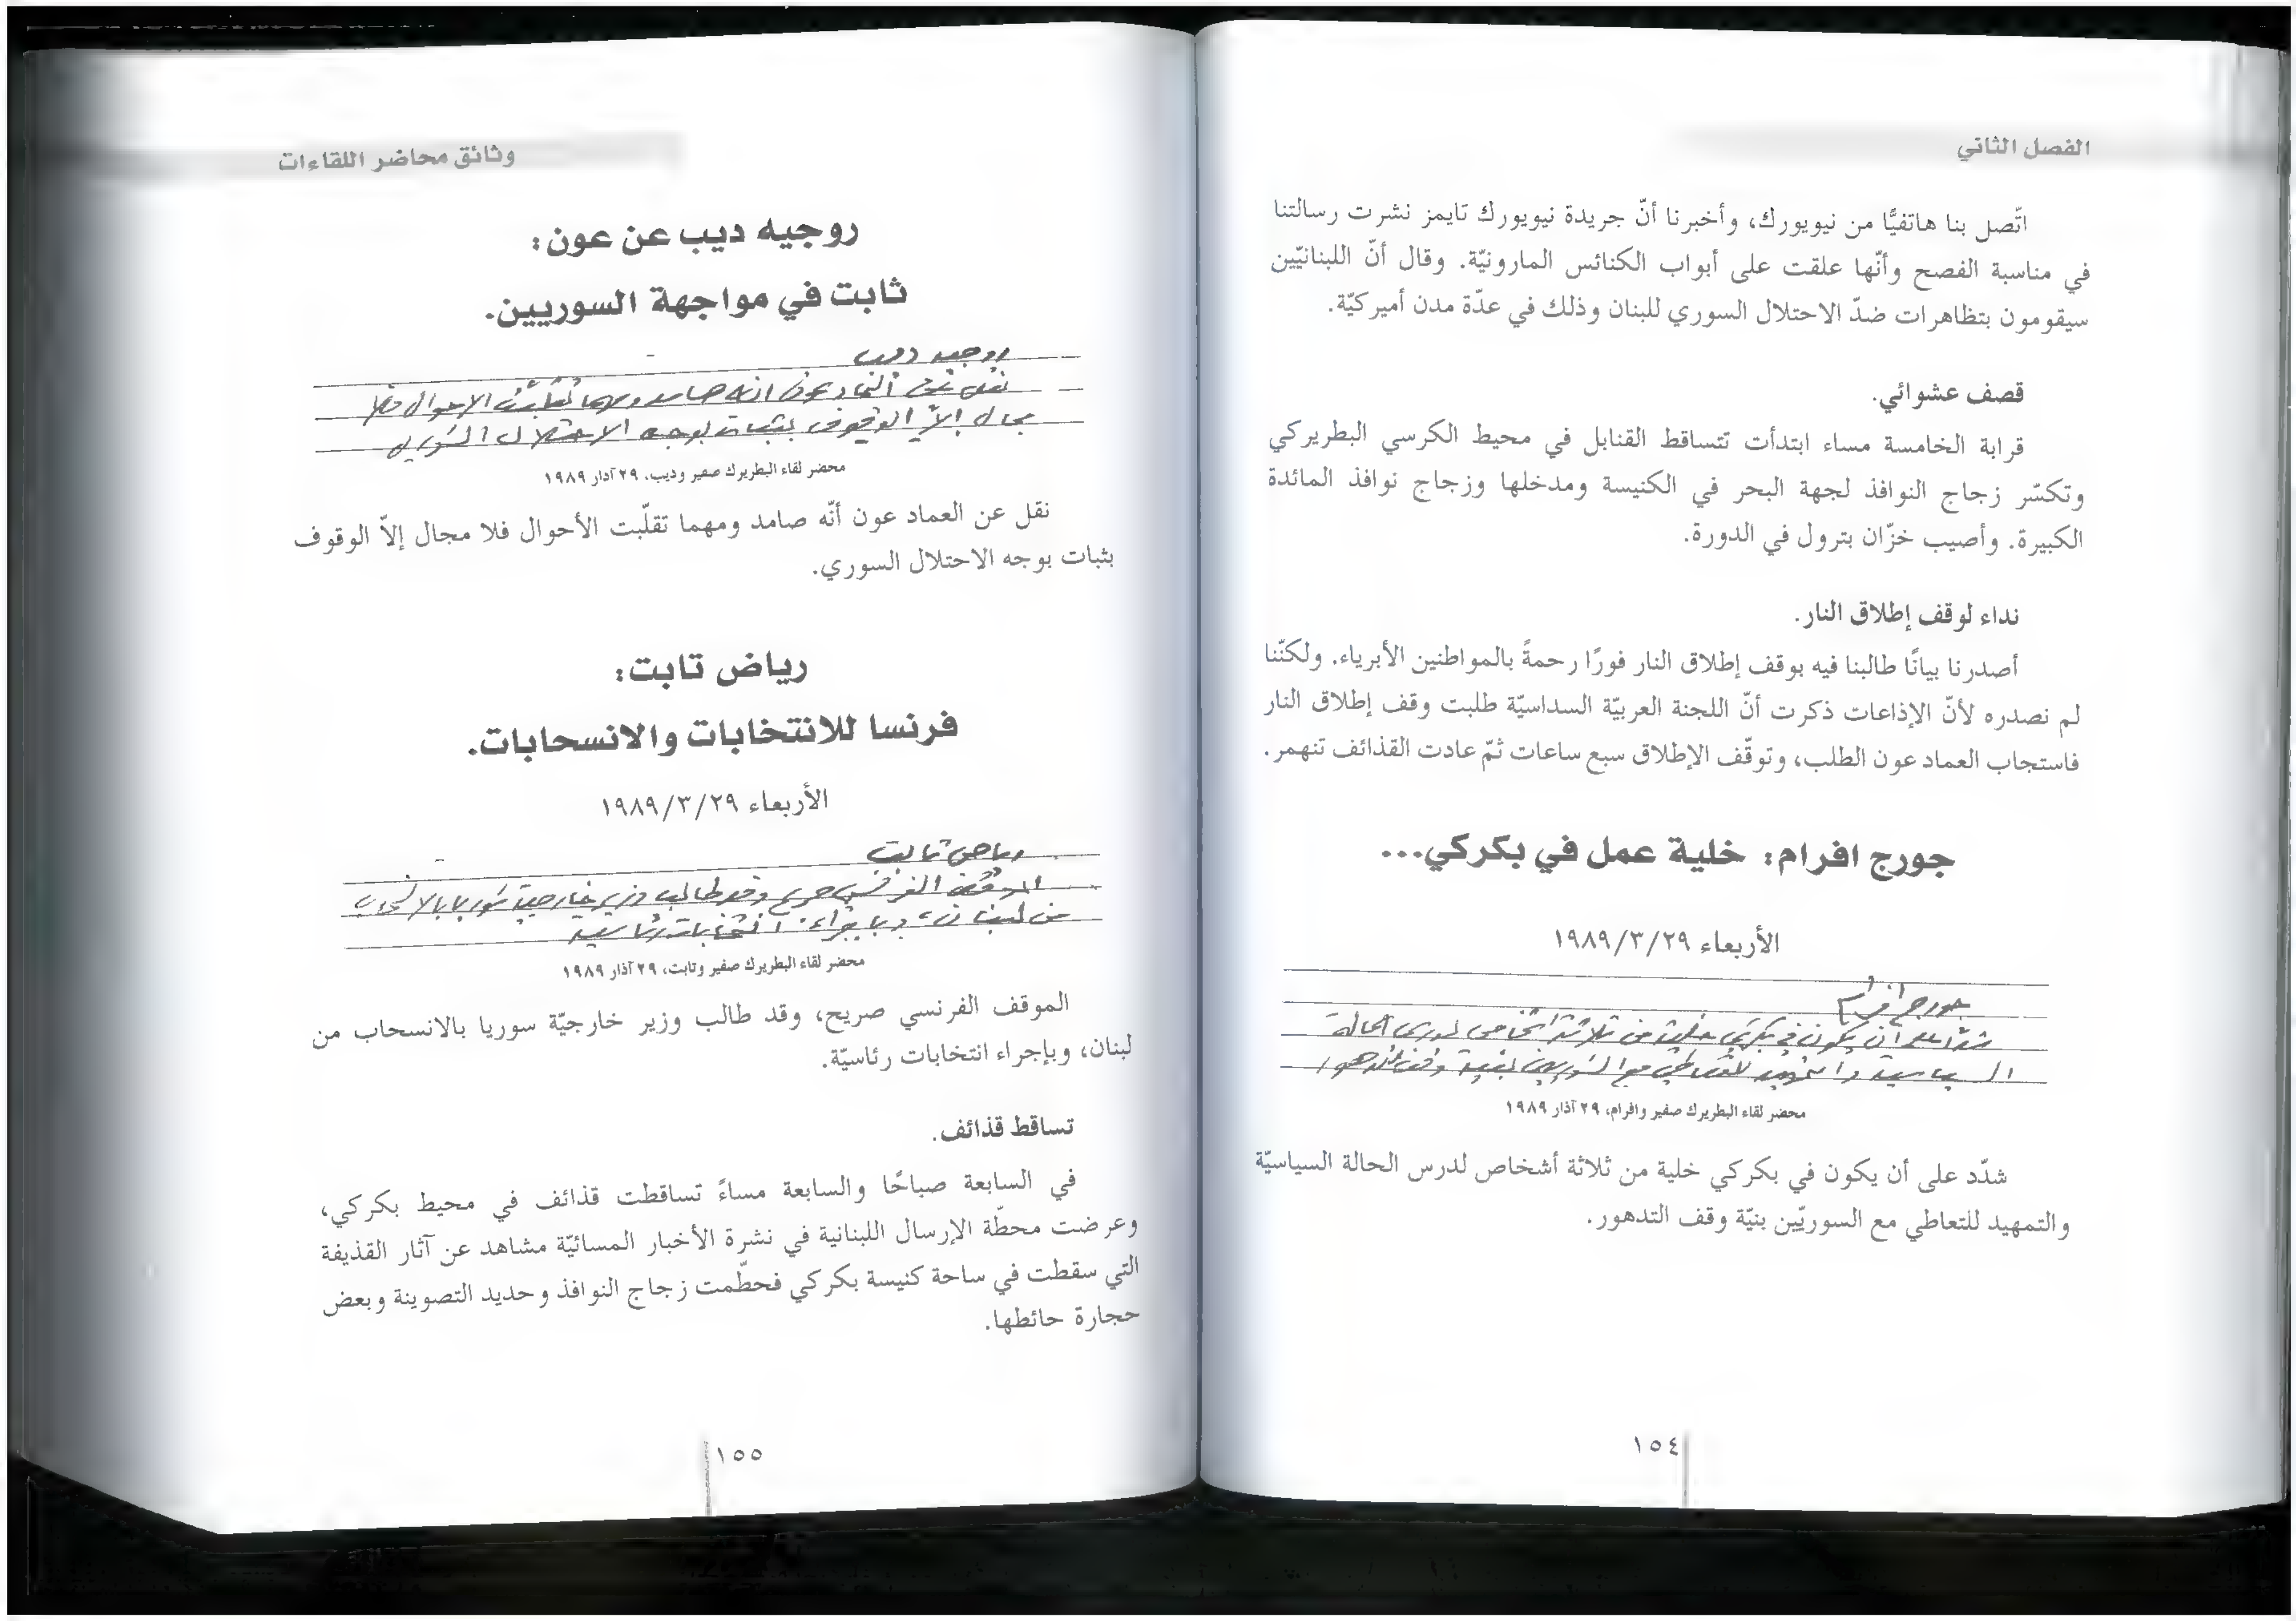 الفصل الثاني
اتّصل بنا هاتفيًّا من نيويورك، وأخبرنا أنّ جريدة نيويورك تايمز نشرت رسالتنا
في مناسبة الفصح وأنّها علقت على أبواب الكنائس المارونيّة. وقال أنّ اللبنانيّين
سيقومون بتظاهرات ضدّ الاحتلال السوري للبنان وذلك في عدّة مدن أميركيّة.
قصف عشوائي.
قرابة الخامسة مساء ابتدأت تتساقط القنابل في محيط الكرسي البطريركي
وتكسّر زجاج النوافذ لجهة البحر في الكنيسة ومدخلها وزجاج نوافذ المائدة
الكبيرة. وأصيب خزّان بترول في الدورة.
نداء لوقف إطلاق النار.
أصدرنا بيانًا طالبنا فيه بوقف إطلاق النار فورًا رحمةً بالمواطنين الأبرياء. ولكنّنا
لم نصدره لأنّ الإذاعات ذكرت أنّ اللجنة العربيّة السداسيّة طلبت وقف إطلاق النار
فاستجاب العماد عون الطلب، وتوقّف الإطلاق سبع ساعات ثمّ عادت القذائف تنهمر.
جورج افرام: خلية عمل في بكركي...
الأربعاء ١٩٨٩/٣/٢٩
جورج افرام
شدّد على أن يكون في بكركي خلية من ثلاثة اشخاص لدرس الحالة
السياسية والتمهيد للتعاطي مع السوريين بنية وقف التدهور
محضر لقاء البطريرك صفير وافرام، ٢٩ آذار ١٩٨٩
شدّد على أن يكون في بكركي خلية من ثلاثة أشخاص لدرس الحالة السياسيّة
والتمهيد للتعاطي مع السوريّين بنيّة وقف التدهور.
١٥٤
وثائق محاضر اللقاءات
روجيه ديب عن عون:
ثابت في مواجهة السوريين.
روجيه ديب
نقل عن العماد عون انه صامد ومهما تقلّبت الاحوال فلا
مجال إلاّ الوقوف بثبات بوجه الاحتلال السوري
محضر لقاء البطريرك صفير وديب، ٢٩ آذار ١٩٨٩
نقل عن العماد عون أنّه صامد ومهما تقلّبت الأحوال فلا مجال إلاّ الوقوف
بثبات بوجه الاحتلال السوري.
رياض تابت:
فرنسا للانتخابات والانسحابات.
الأربعاء ١٩٨٩/٣/٢٩
رياض تابت
الموقف الفرنسي صريح وقد طالب وزير خارجية سوريا بالانسحاب
من لبنان، وبإجراء انتخابات رئاسية
محضر لقاء البطريرك صفير وتابت، ٢٩ آذار ١٩٨٩
الموقف الفرنسي صريح، وقد طالب وزير خارجيّة سوريا بالانسحاب من
لبنان، وبإجراء انتخابات رئاسيّة.
تساقط قذائف.
في السابعة صباحًا والسابعة مساءً تساقطت قذائف في محيط بكركي،
وعرضت محطّة الإرسال اللبنانية في نشرة الأخبار المسائيّة مشاهد عن آثار القذيفة
التي سقطت في ساحة كنيسة بكركي فحطّمت زجاج النوافذ وحديد التصوينة وبعض
حجارة حائطها.
١٥٥